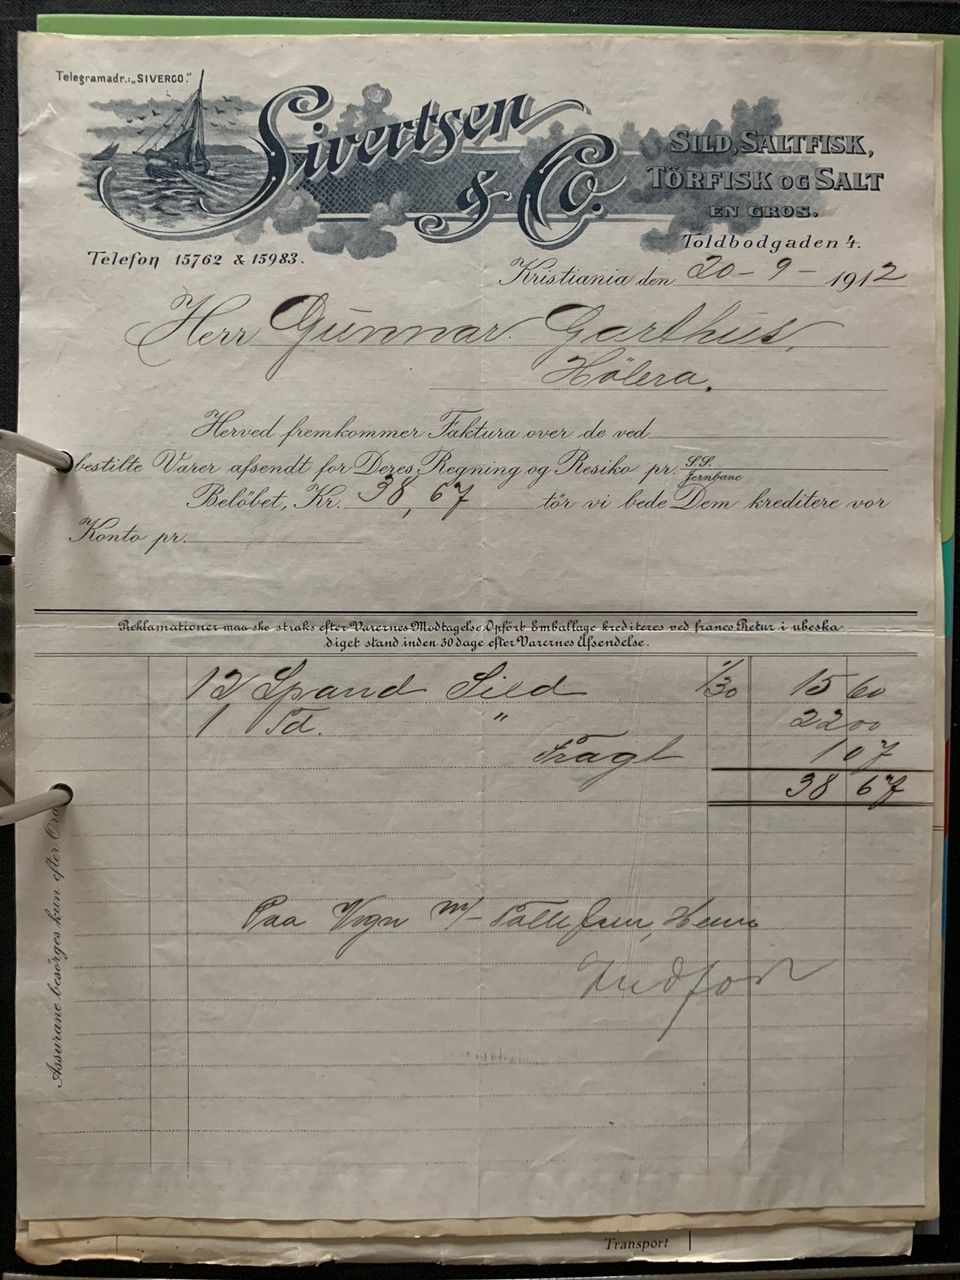 Telegramadr.: „SIVERCO."
Sivertsen & Co.
SILD, SALTFISK,
TÖRFISK OG SALT
EN GROS.
Toldbodgaden 4.
Telefon 15762 & 15983.
Kristiania den 20-9- 1912
Herr Gunnar Garthus,
Hölera.
Herved fremkommer Faktura over de ved
bestilte Varer afsendt for Deres Regning og Resiko pr. S.S. Jernbane
Belöbet, Kr. 38,67 tör vi bede Dem kreditere vor
Konto pr.
Reklamationer maa ske straks efter Varernes Modtagelse. Opfört Emballage krediteres ved franco Retur i ubeska-
diget stand inden 30 dage efter Varernes Afsendelse.
12 Spand Sild 1/30 15 60
1 Td. " 22 00
Fragt 1 07
38 67
Paa Vogn m/
Indfört
Assurane besörges kun efter Ord
Transport